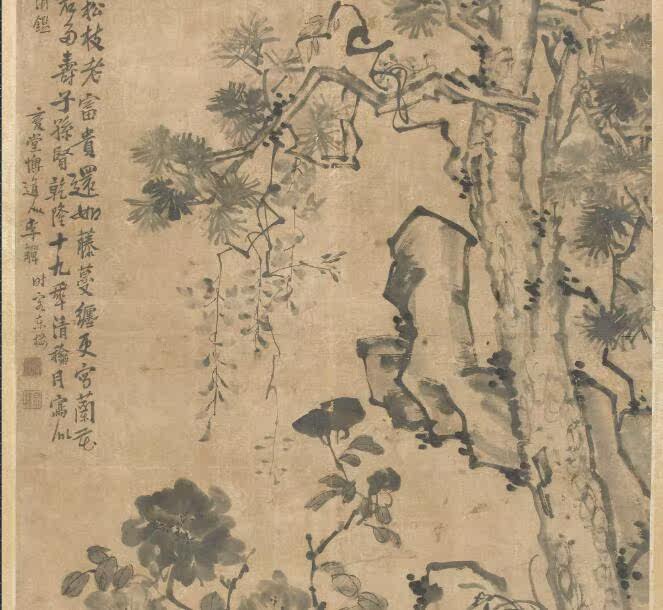 松枝老富貴還如藤蔓纏更寫蘭花
君多壽子孫賢乾隆十九年清月寫似
清鑑
復堂懊道人李鱓時客東